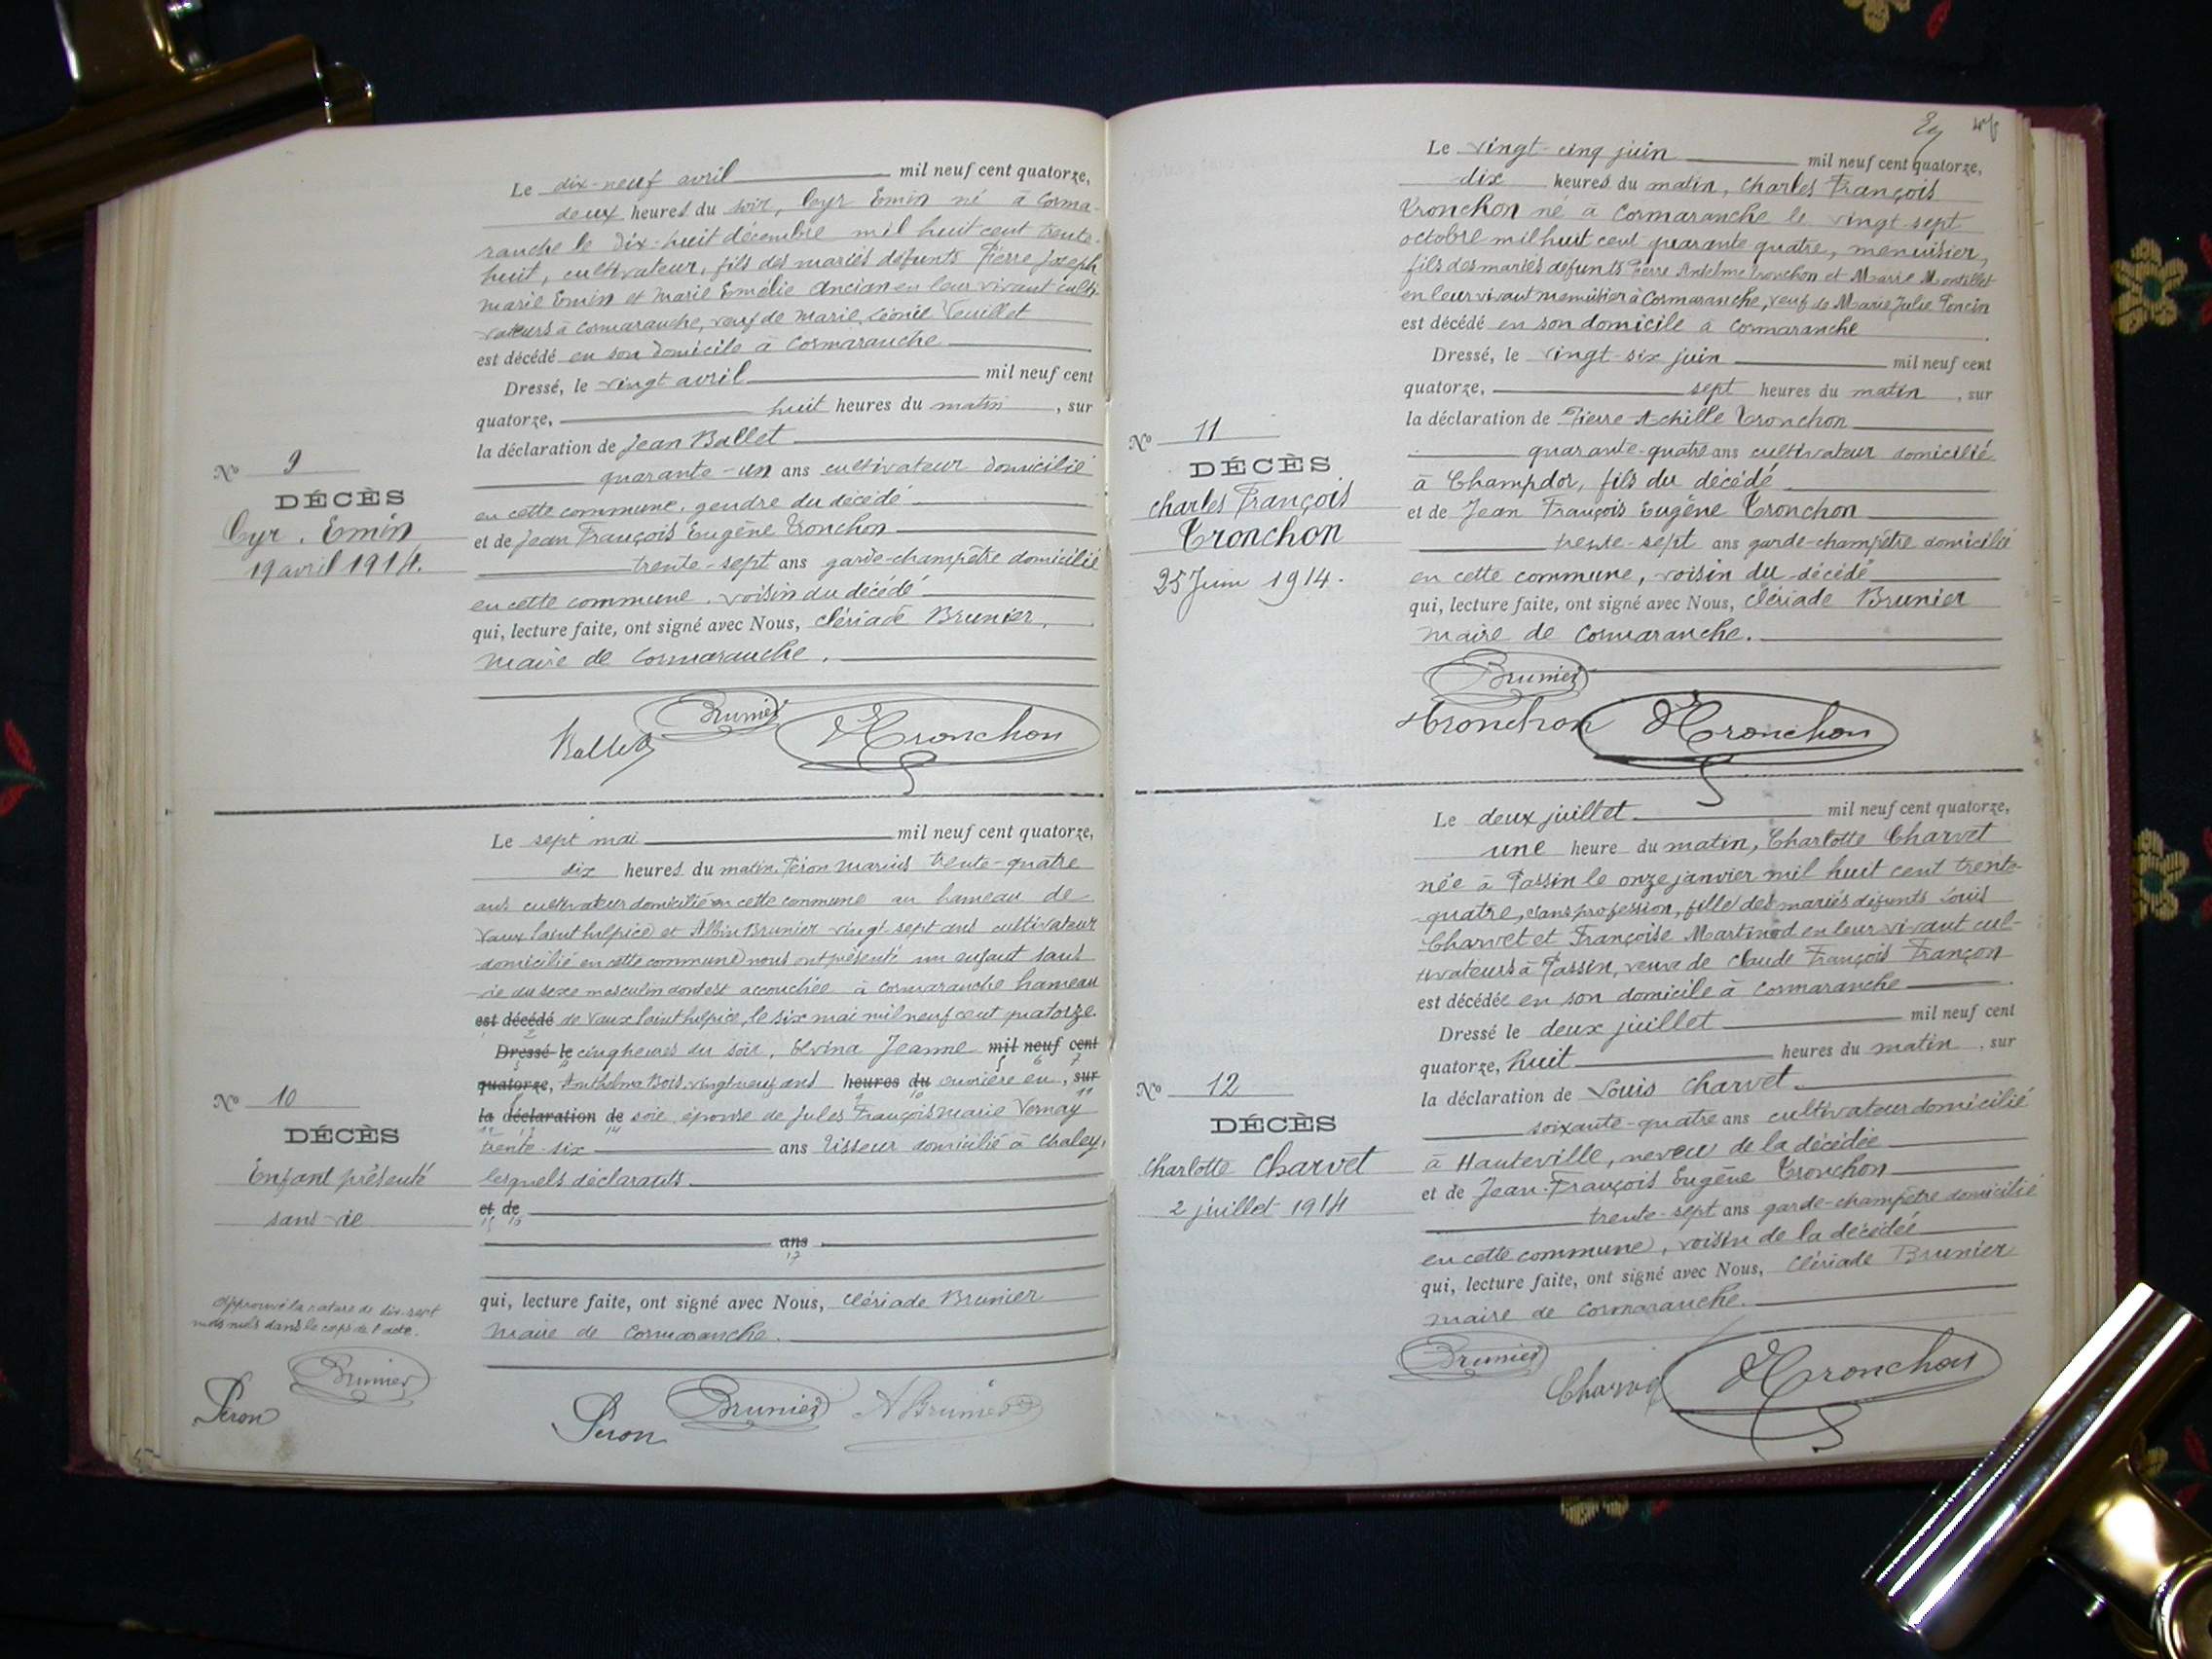 Le dix-neuf avril mil neuf cent quatorze,
deux heures du soir, Cyr Emin né à Corma-
ranche le dix-huit décembre mil huit cent trente-
huit, cultivateur, fils des mariés défunts Pierre Joseph
Marie Emin et Marie Emélie Ancian en leur vivant culti-
vateurs à Cormaranche, veuf de Marie, Léonie Veuillet
est décédé en son domicile à Cormaranche
Dressé, le vingt avril mil neuf cent
quatorze, huit heures du matin, sur
la déclaration de Jean Ballet
quarante-un ans cultivateur domicilié
en cette commune, gendre du décédé
et de Jean François Eugène Tronchon
trente-sept ans garde-champêtre domicilié
en cette commune, voisin du décédé
qui, lecture faite, ont signé avec Nous, Clériade Brunier,
Maire de Cormaranche.
No 9
DÉCÈS
Cyr. Emin
19 avril 1914.
Ballet Brunier Tronchon
Le sept mai mil neuf cent quatorze,
dix heures du matin, Péron Marius trente-quatre
ans cultivateur domicilié en cette commune au hameau de
Vaux Saint Sulpice et Albin Brunier vingt-sept ans cultivateur
domicilié en cette commune nous ont présenté un enfant sans
vie du sexe masculin dont est accouchée à Cormaranche hameau
est décédé de Vaux Saint Sulpice, le six mai mil neuf cent quatorze
Dressé le cinq heures du soir, Elvina Jeanne mil neuf cent
quatorze, Anthelma Bois vingt neuf ans heures du ouvrière en, sur
la déclaration de soie, épouse de Jules François Marie Vernay
trente-six ans tisseur domicilié à Chaley,
lesquels déclarants
et de
ans
qui, lecture faite, ont signé avec Nous, Clériade Brunier
Maire de Cormaranche.
No 10
DÉCÈS
Enfant présenté
sans vie
Approuvé la rature de dix-sept
mots nuls dans le corps de l'acte.
Brunier
Péron
Péron Brunier A Brunier
Le vingt-cinq juin mil neuf cent quatorze,
dix heures du matin, Charles François
Tronchon né à Cormaranche le vingt sept
octobre mil huit cent quarante quatre, menuisier,
fils des mariés défunts Pierre Anselme Tronchon et Marie Montillet
en leur vivant menuisier à Cormaranche, veuf de Marie Julie Poncin
est décédé en son domicile à Cormaranche
Dressé, le vingt-six juin mil neuf cent
quatorze, sept heures du matin, sur
la déclaration de Pierre Achille Tronchon
quarante-quatre ans cultivateur domicilié
à Champdor, fils du décédé
et de Jean François Eugène Tronchon
trente-sept ans garde-champêtre domicilié
en cette commune, voisin du décédé
qui, lecture faite, ont signé avec Nous, Clériade Brunier
Maire de Cormaranche.
No 11
DÉCÈS
Charles François
Tronchon
25 Juin 1914.
Brunier
Tronchon Tronchon
Le deux juillet mil neuf cent quatorze,
une heure du matin, Charlotte Charvet
née à Passin le onze janvier mil huit cent trente-
quatre, sans profession, fille des mariés défunts Louis
Charvet et Françoise Martinod en leur vivant cul-
tivateurs à Passin, veuve de Claude François Françon
est décédée en son domicile à Cormaranche
Dressé le deux juillet mil neuf cent
quatorze, huit heures du matin, sur
la déclaration de Louis Charvet
soixante-quatre ans cultivateur domicilié
à Hauteville, neveu de la décédée
et de Jean-François Eugène Tronchon
trente-sept ans garde-champêtre domicilié
en cette commune, voisin de la décédée
qui, lecture faite, ont signé avec Nous, Clériade Brunier
Maire de Cormaranche.
No 12
DÉCÈS
Charlotte Charvet
2 juillet 1914
Brunier
Charvet Tronchon